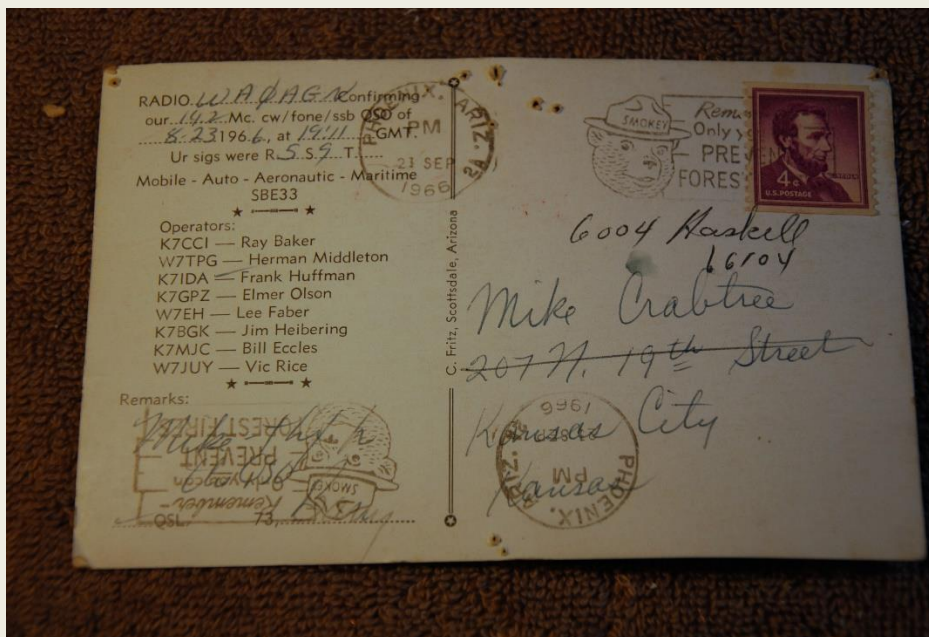 RADIO WAØAGN Confirming
our 14.2 Mc. cw/fone/ssb QSO of
8-23 1966, at 1911 GMT.
Ur sigs were R 5 S 9 T
Mobile - Auto - Aeronautic - Maritime
SBE33
Operators:
K7CCI — Ray Baker
W7TPG — Herman Middleton
K7IDA — Frank Huffman
K7GPZ — Elmer Olson
W7EH — Lee Faber
K7BGK — Jim Heibering
K7MJC — Bill Eccles
W7JUY — Vic Rice
Remarks:
Mike
QSL 73,
Remember-
Only you can
PREVENT
FOREST FIRES
SMOKEY
PHOENIX, ARIZ.
PM
1966
C. Fritz, Scottsdale, Arizona
PHOENIX, ARIZ.
PM
21 SEP
1966
SMOKEY
Rem
Only y
PREV
FOREST
4c
U.S. POSTAGE
6004 Haskell
66104
Mike Crabtree
207 N. 19th Street
Kansas City
Kansas